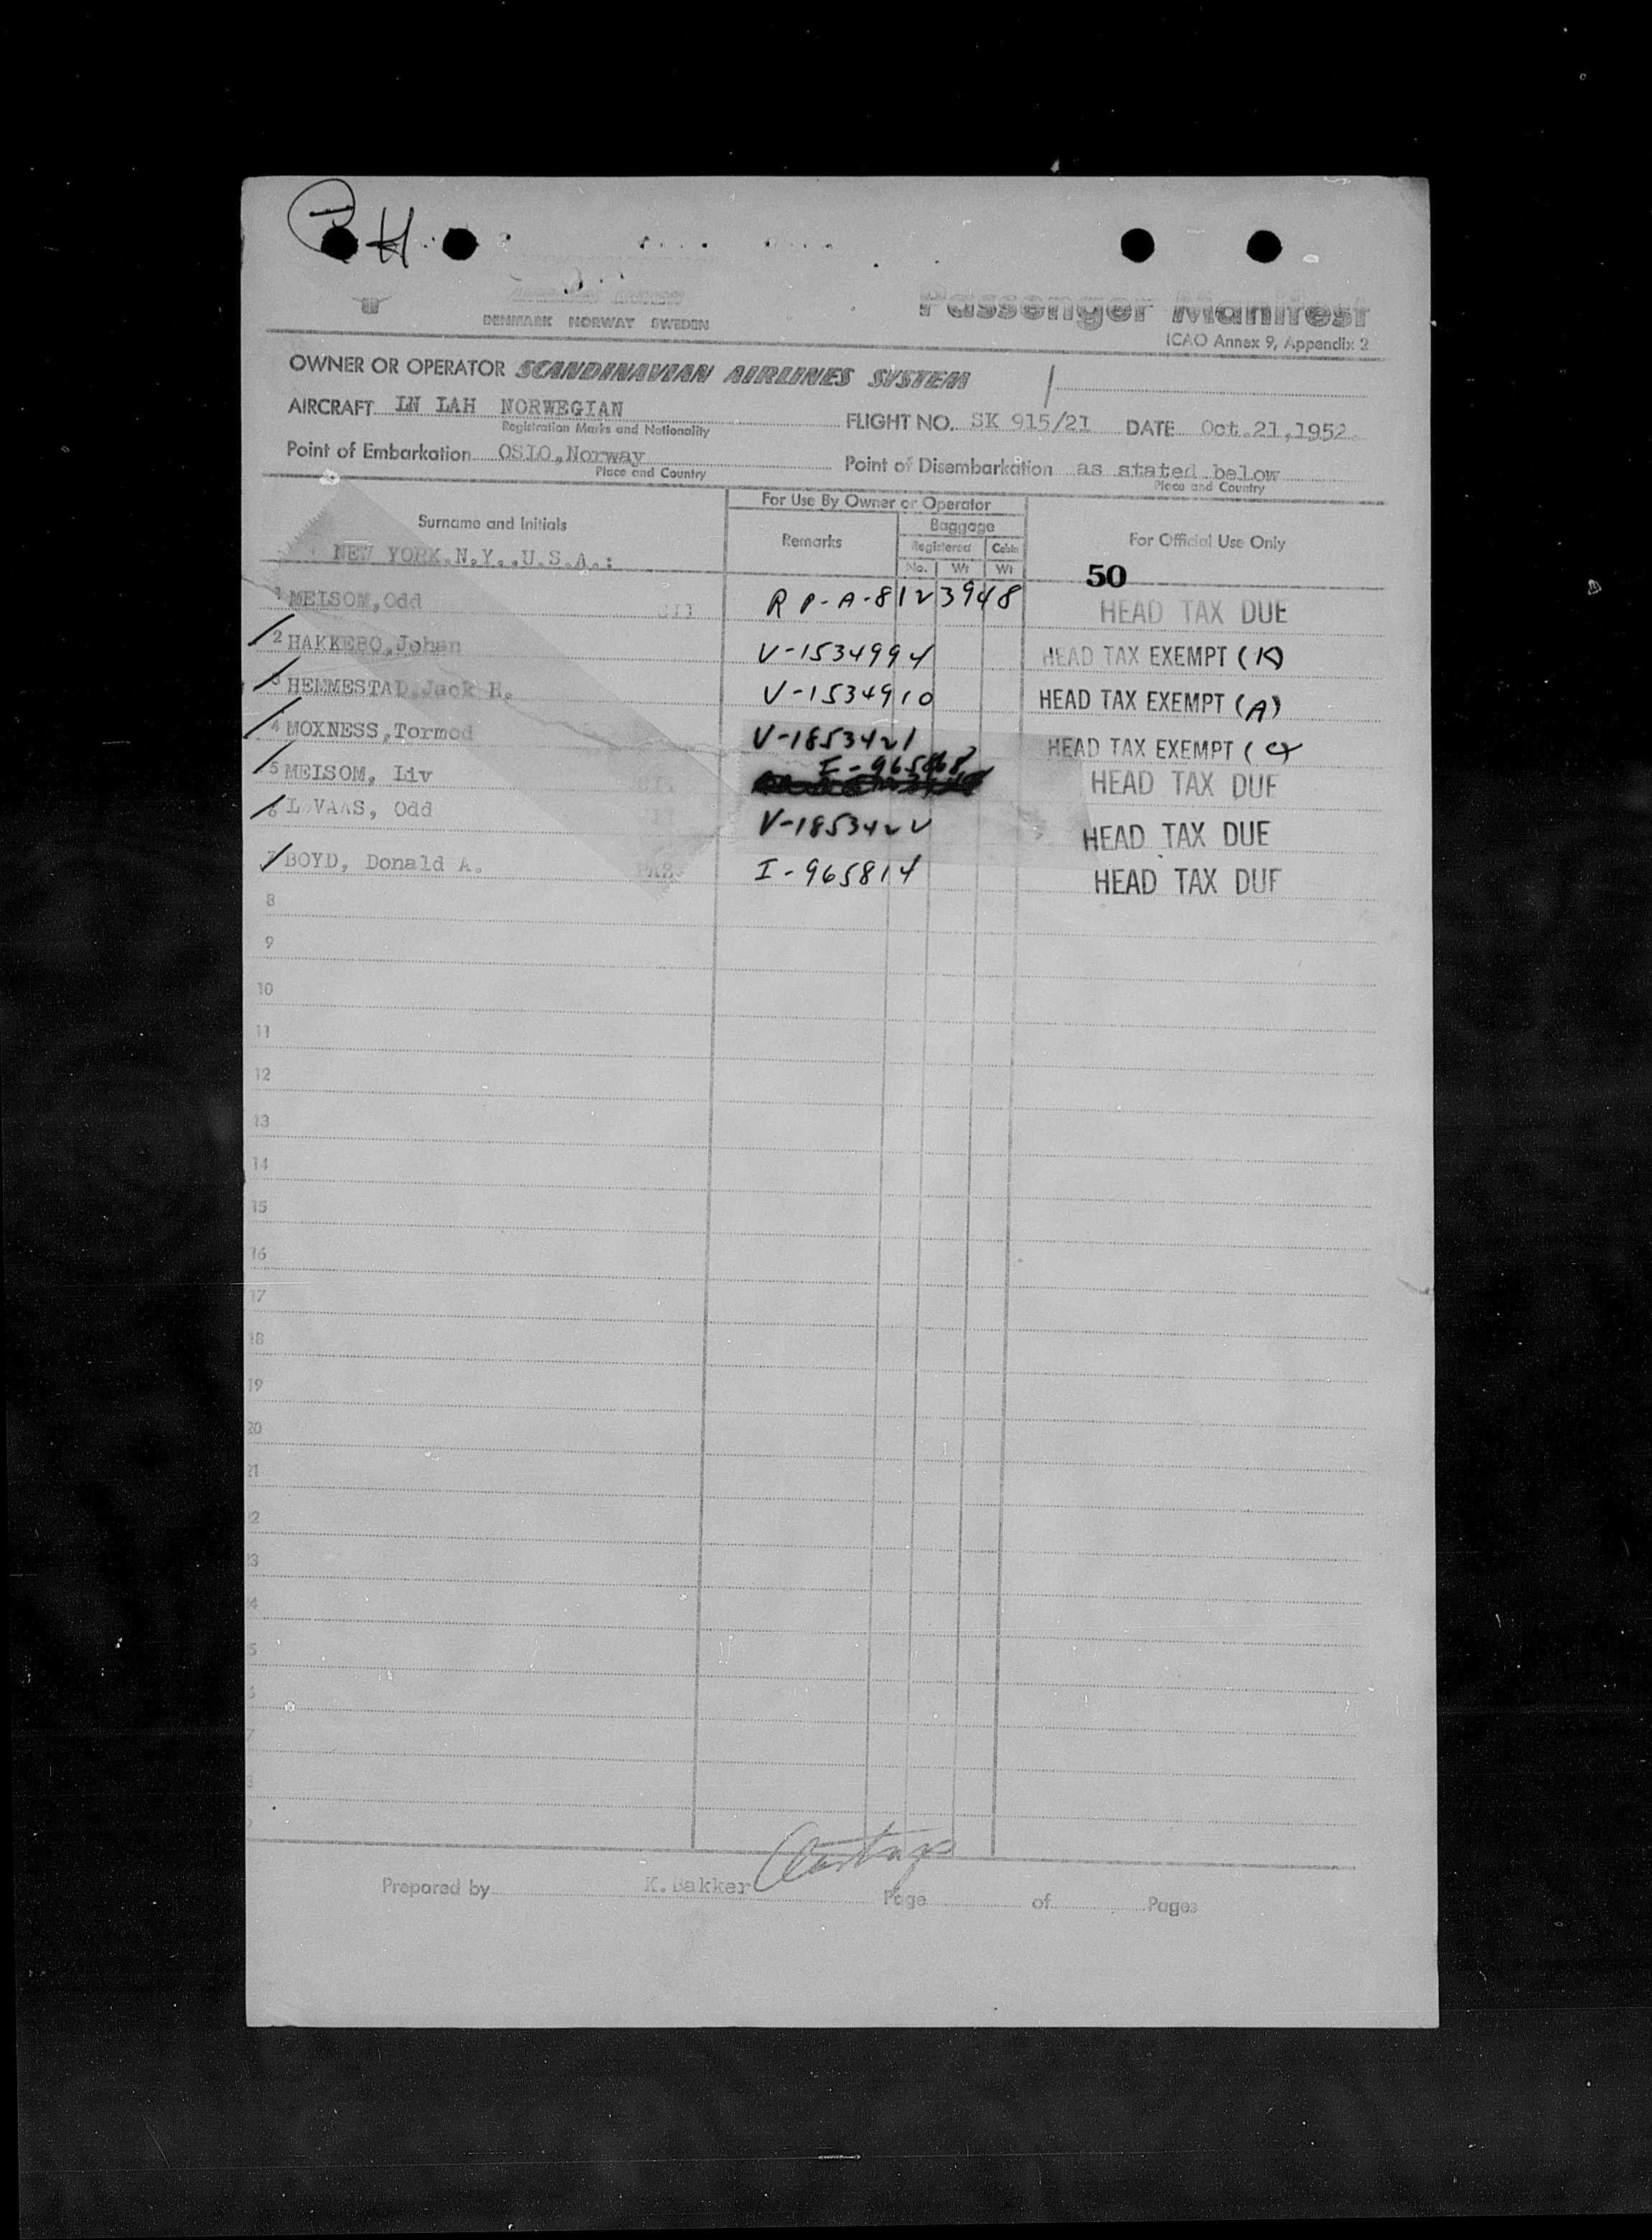 H
DENMARK NORWAY SWEDEN
Passenger Manifest
ICAO Annex 9, Appendix 2
OWNER OR OPERATOR SCANDINAVIAN AIRLINES SYSTEM
AIRCRAFT LN LAH NORWEGIAN
Registration Marks and Nationality
FLIGHT NO. SK 915/21 DATE Oct.21,1952.
Point of Embarkation OSLO,Norway
Place and Country
Point of Disembarkation as stated below
Place and Country
For Use By Owner or Operator
Surname and Initials
Remarks
Baggage
Registered Cabin
No. Wt Wt
For Official Use Only
NEW YORK.N.Y.,U.S.A.:
50
1 MEISOM,Odd RP-A-8123948 HEAD TAX DUE
2 HAKKEBO,Johan V-1534994 HEAD TAX EXEMPT (K)
3 HEMMESTAD,Jack H. V-1534910 HEAD TAX EXEMPT (A)
4 MOXNESS,Tormod V-1853421 HEAD TAX EXEMPT (C)
5 MEISOM, Liv I-965868 HEAD TAX DUE
6 LOVAAS, Odd V-1853422 HEAD TAX DUE
7 BOYD, Donald A. I-965814 HEAD TAX DUE
8
9
10
11
12
13
14
15
16
17
18
19
20
21
22
23
24
5
6
7
8
Prepared by K.Bakker Page of Pages